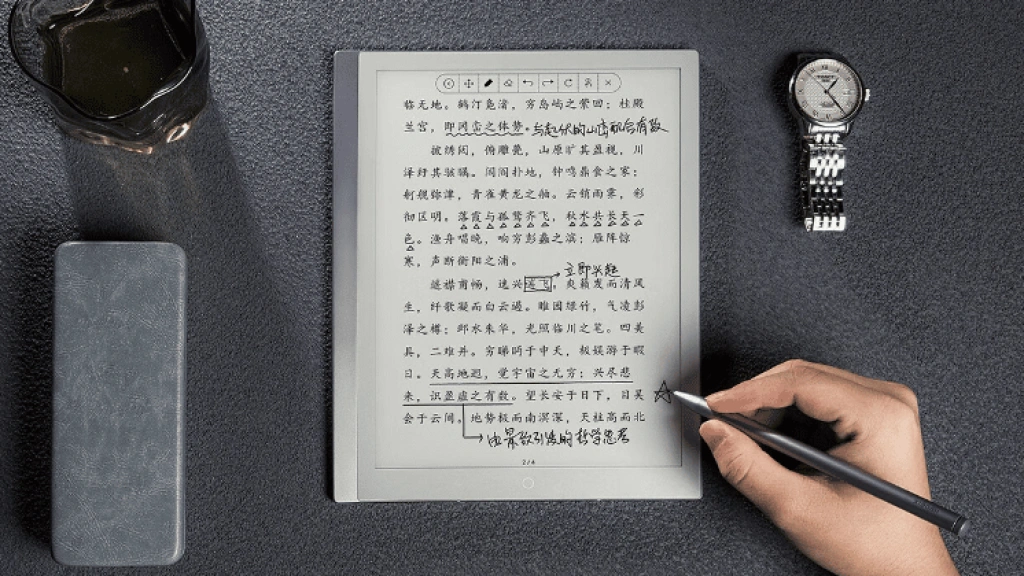 临无地。鹤汀凫渚,穷岛屿之萦回;桂殿
兰宫,即冈峦之体势。与起伏的山峦配合有致
披绣闼,俯雕甍,山原旷其盈视,川
泽纡其骇瞩。闾阎扑地,钟鸣鼎食之家;
舸舰弥津,青雀黄龙之舳。云销雨霁,彩
彻区明。落霞与孤鹜齐飞,秋水共长天一
色。渔舟唱晚,响穷彭蠡之滨;雁阵惊
寒,声断衡阳之浦。
立即兴起
遥襟甫畅,逸兴遄飞。爽籁发而清风
生,纤歌凝而白云遏。睢园绿竹,气凌彭
泽之樽;邺水朱华,光照临川之笔。四美
具,二难并。穷睇眄于中天,极娱游于暇
日。天高地迥,觉宇宙之无穷;兴尽悲
来,识盈虚之有数。望长安于日下,目吴
会于云间。地势极而南溟深,天柱高而北
由景致引发的哲学思考
2/4